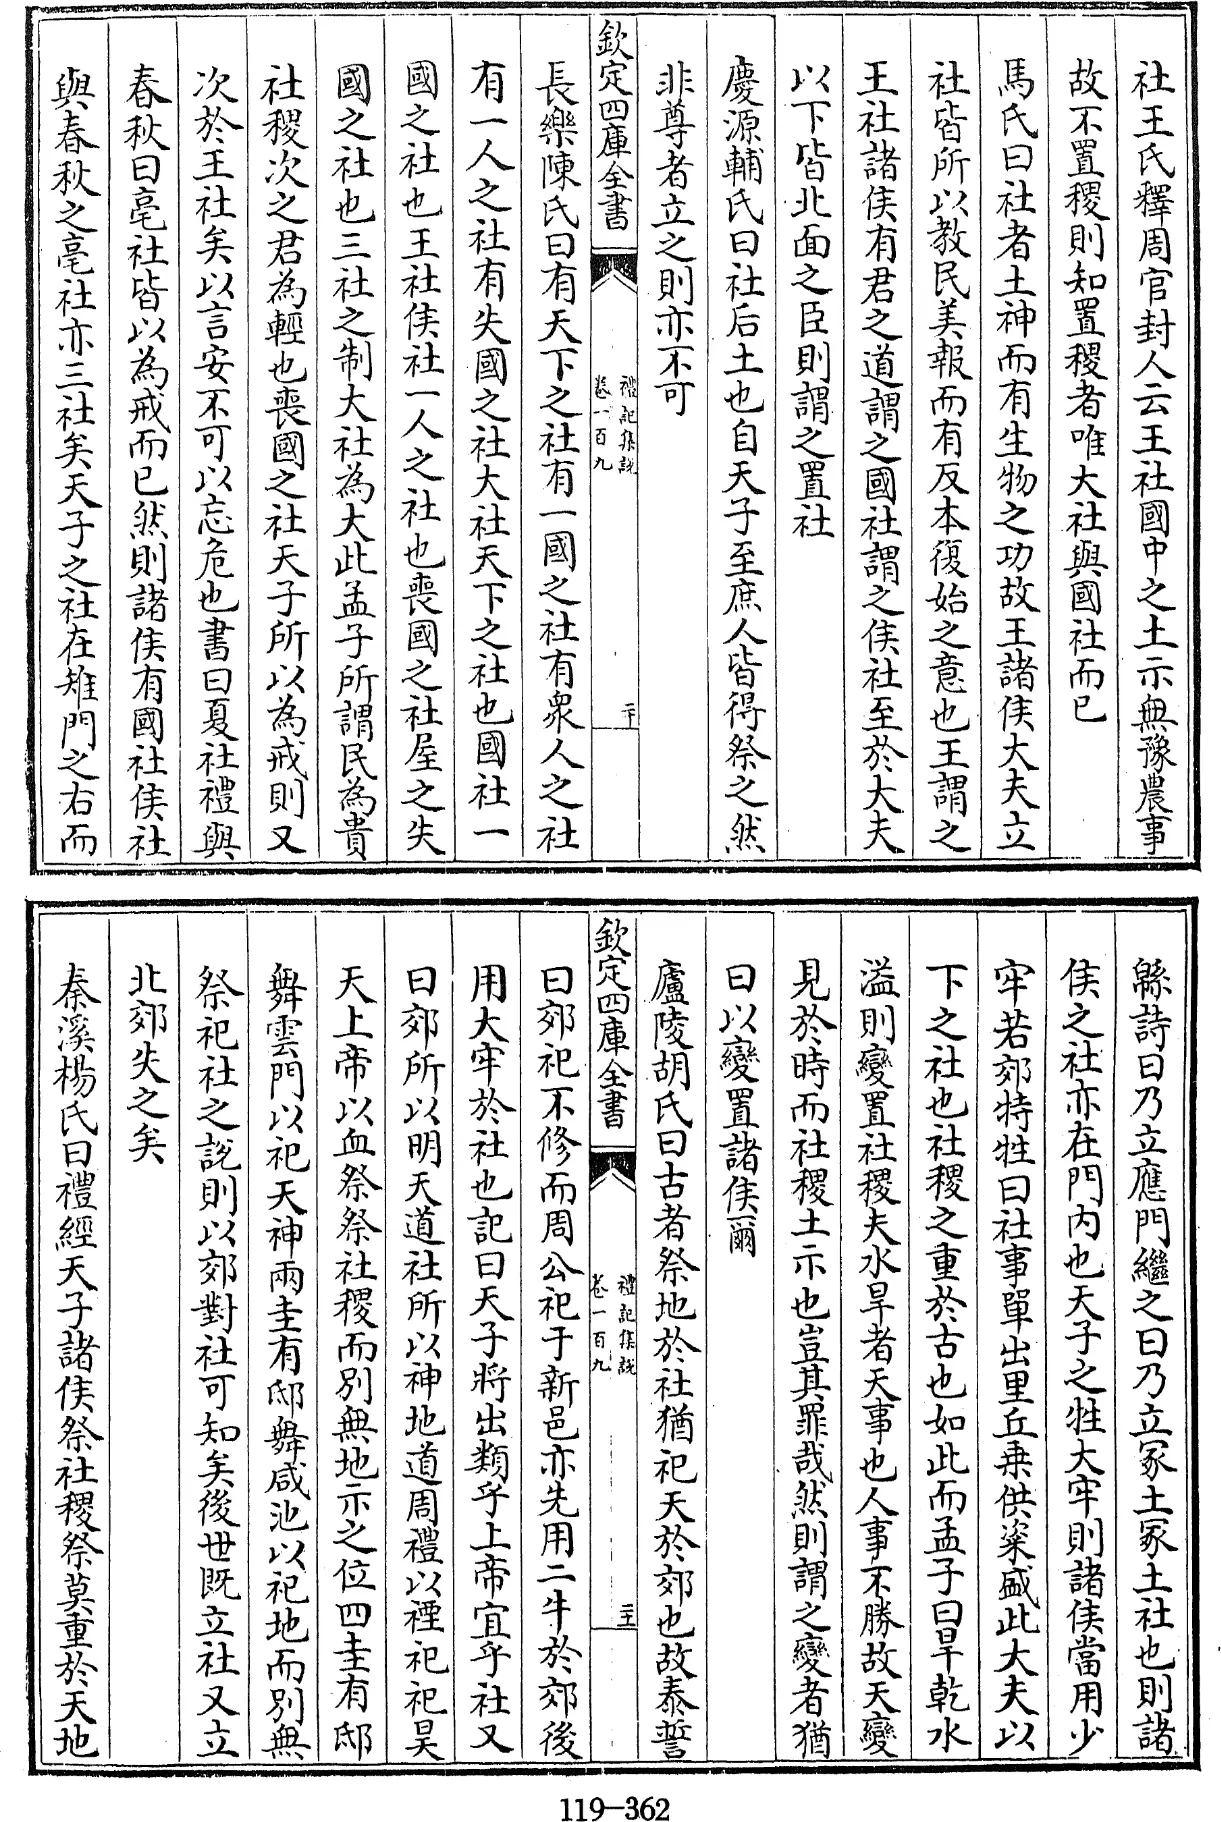 社王氏釋周官封人云王社國中之土示無豫農事
故不置稷則知置稷者唯大社與國社而已
馬氏曰社者土神而有生物之功故王諸侯大夫立
社皆所以教民美報而有反本復始之意也王謂之
王社諸侯有君之道謂之國社謂之侯社至於大夫
以下皆北面之臣則謂之置社
慶源輔氏曰社后土也自天子至庶人皆得祭之然
非尊者立之則亦不可
欽定四庫全書
禮記集說
卷一百九
二十
長樂陳氏曰有天下之社有一國之社有衆人之社
有一人之社有失國之社大社天下之社也國社一
國之社也王社侯社一人之社也喪國之社屋之失
國之社也三社之制大社為大此孟子所謂民為貴
社稷次之君為輕也喪國之社天子所以為戒則又
次於王社矣以言安不可以忘危也書曰夏社禮與
春秋曰亳社皆以為戒而已然則諸侯有國社侯社
與春秋之亳社亦三社矣天子之社在雉門之右而
緜詩曰乃立應門繼之曰乃立冢土冢土社也則諸
侯之社亦在門內也天子之牲大牢則諸侯當用少
牢若郊特牲曰社事單出里丘乗供粢盛此大夫以
下之社也社稷之重於古也如此而孟子曰旱乾水
溢則變置社稷夫水旱者天事也人事不勝故天變
見於時而社稷土示也豈其罪哉然則謂之變者猶
曰以變置諸侯爾
廬陵胡氏曰古者祭地於社猶祀天於郊也故泰誓
欽定四庫全書
禮記集說
卷一百九
二十一
曰郊祀不修而周公祀于新邑亦先用二牛於郊後
用大牢於社也記曰天子將出類乎上帝宜乎社又
曰郊所以明天道社所以神地道周禮以禋祀祀昊
天上帝以血祭祭社稷而別無地示之位四圭有邸
舞雲門以祀天神兩圭有邸舞咸池以祀地而別無
祭祀社之說則以郊對社可知矣後世既立社又立
北郊失之矣
秦溪楊氏曰禮經天子諸侯祭社稷祭莫重於天地
119-362